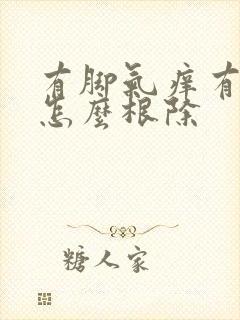 有脚氣痒有
怎麼根除
糖人家